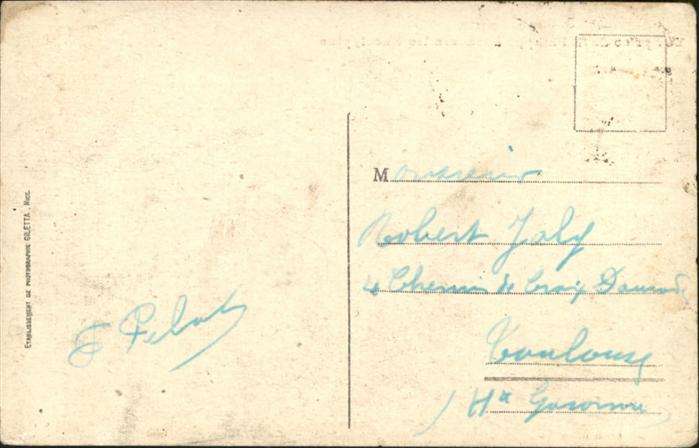 Monsieur
Robert Joly
4 Chemin de Croix Daurade
Toulouse
(Hte Garonne)
E Pelat
ETABLISSEMENT DE PHOTOGRAPHIE GILETTA. NICE.